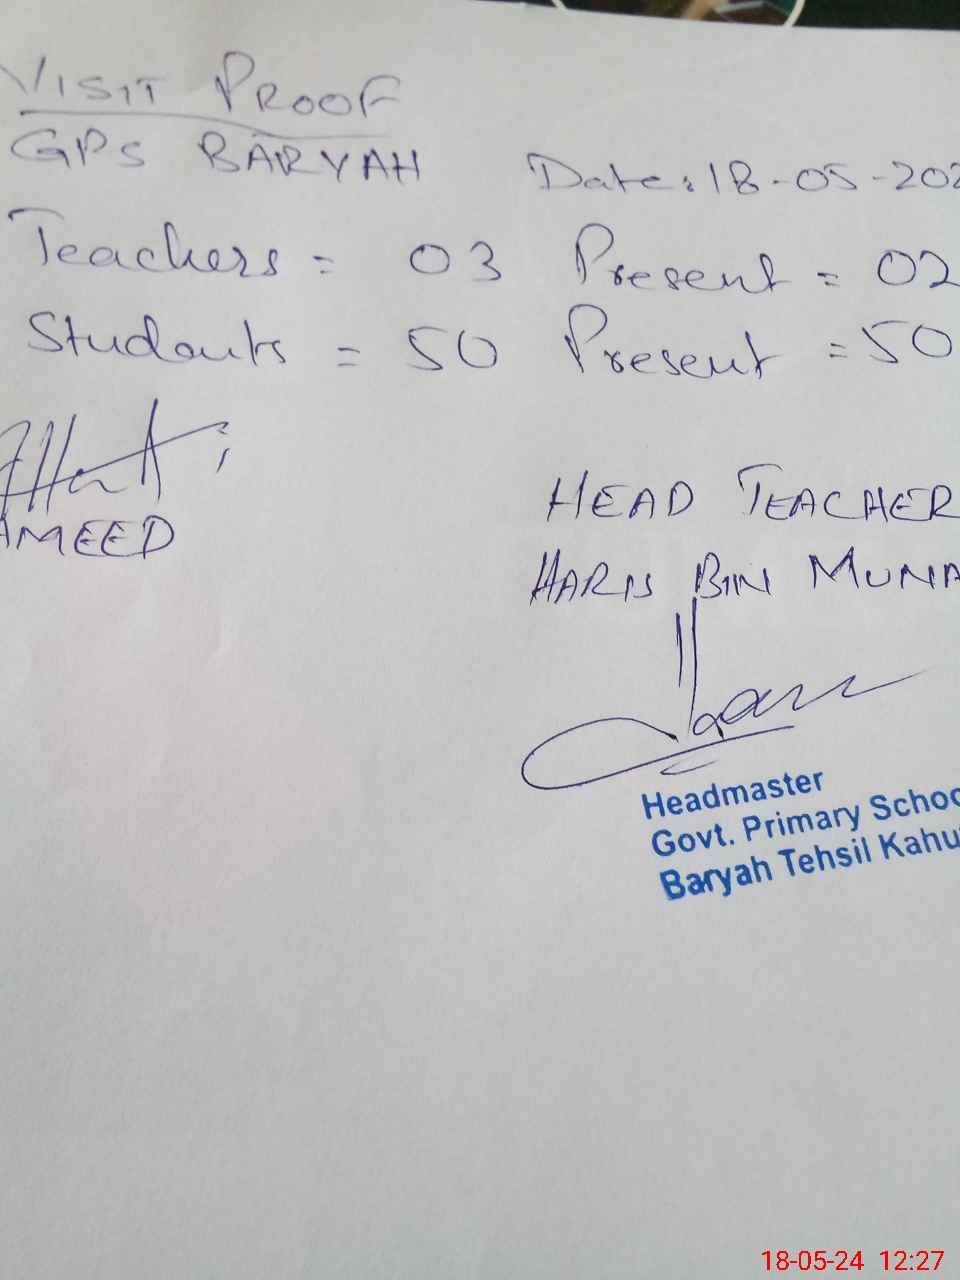 VISIT PROOF
GPS BARYAH
Date: 18-05-202
Teachers = 03 Present = 02
Students = 50 Present = 50
AMEED
HEAD TEACHER
HARIS BIN MUNA
Headmaster
Govt. Primary Schoo
Baryah Tehsil Kahu
18-05-24 12:27